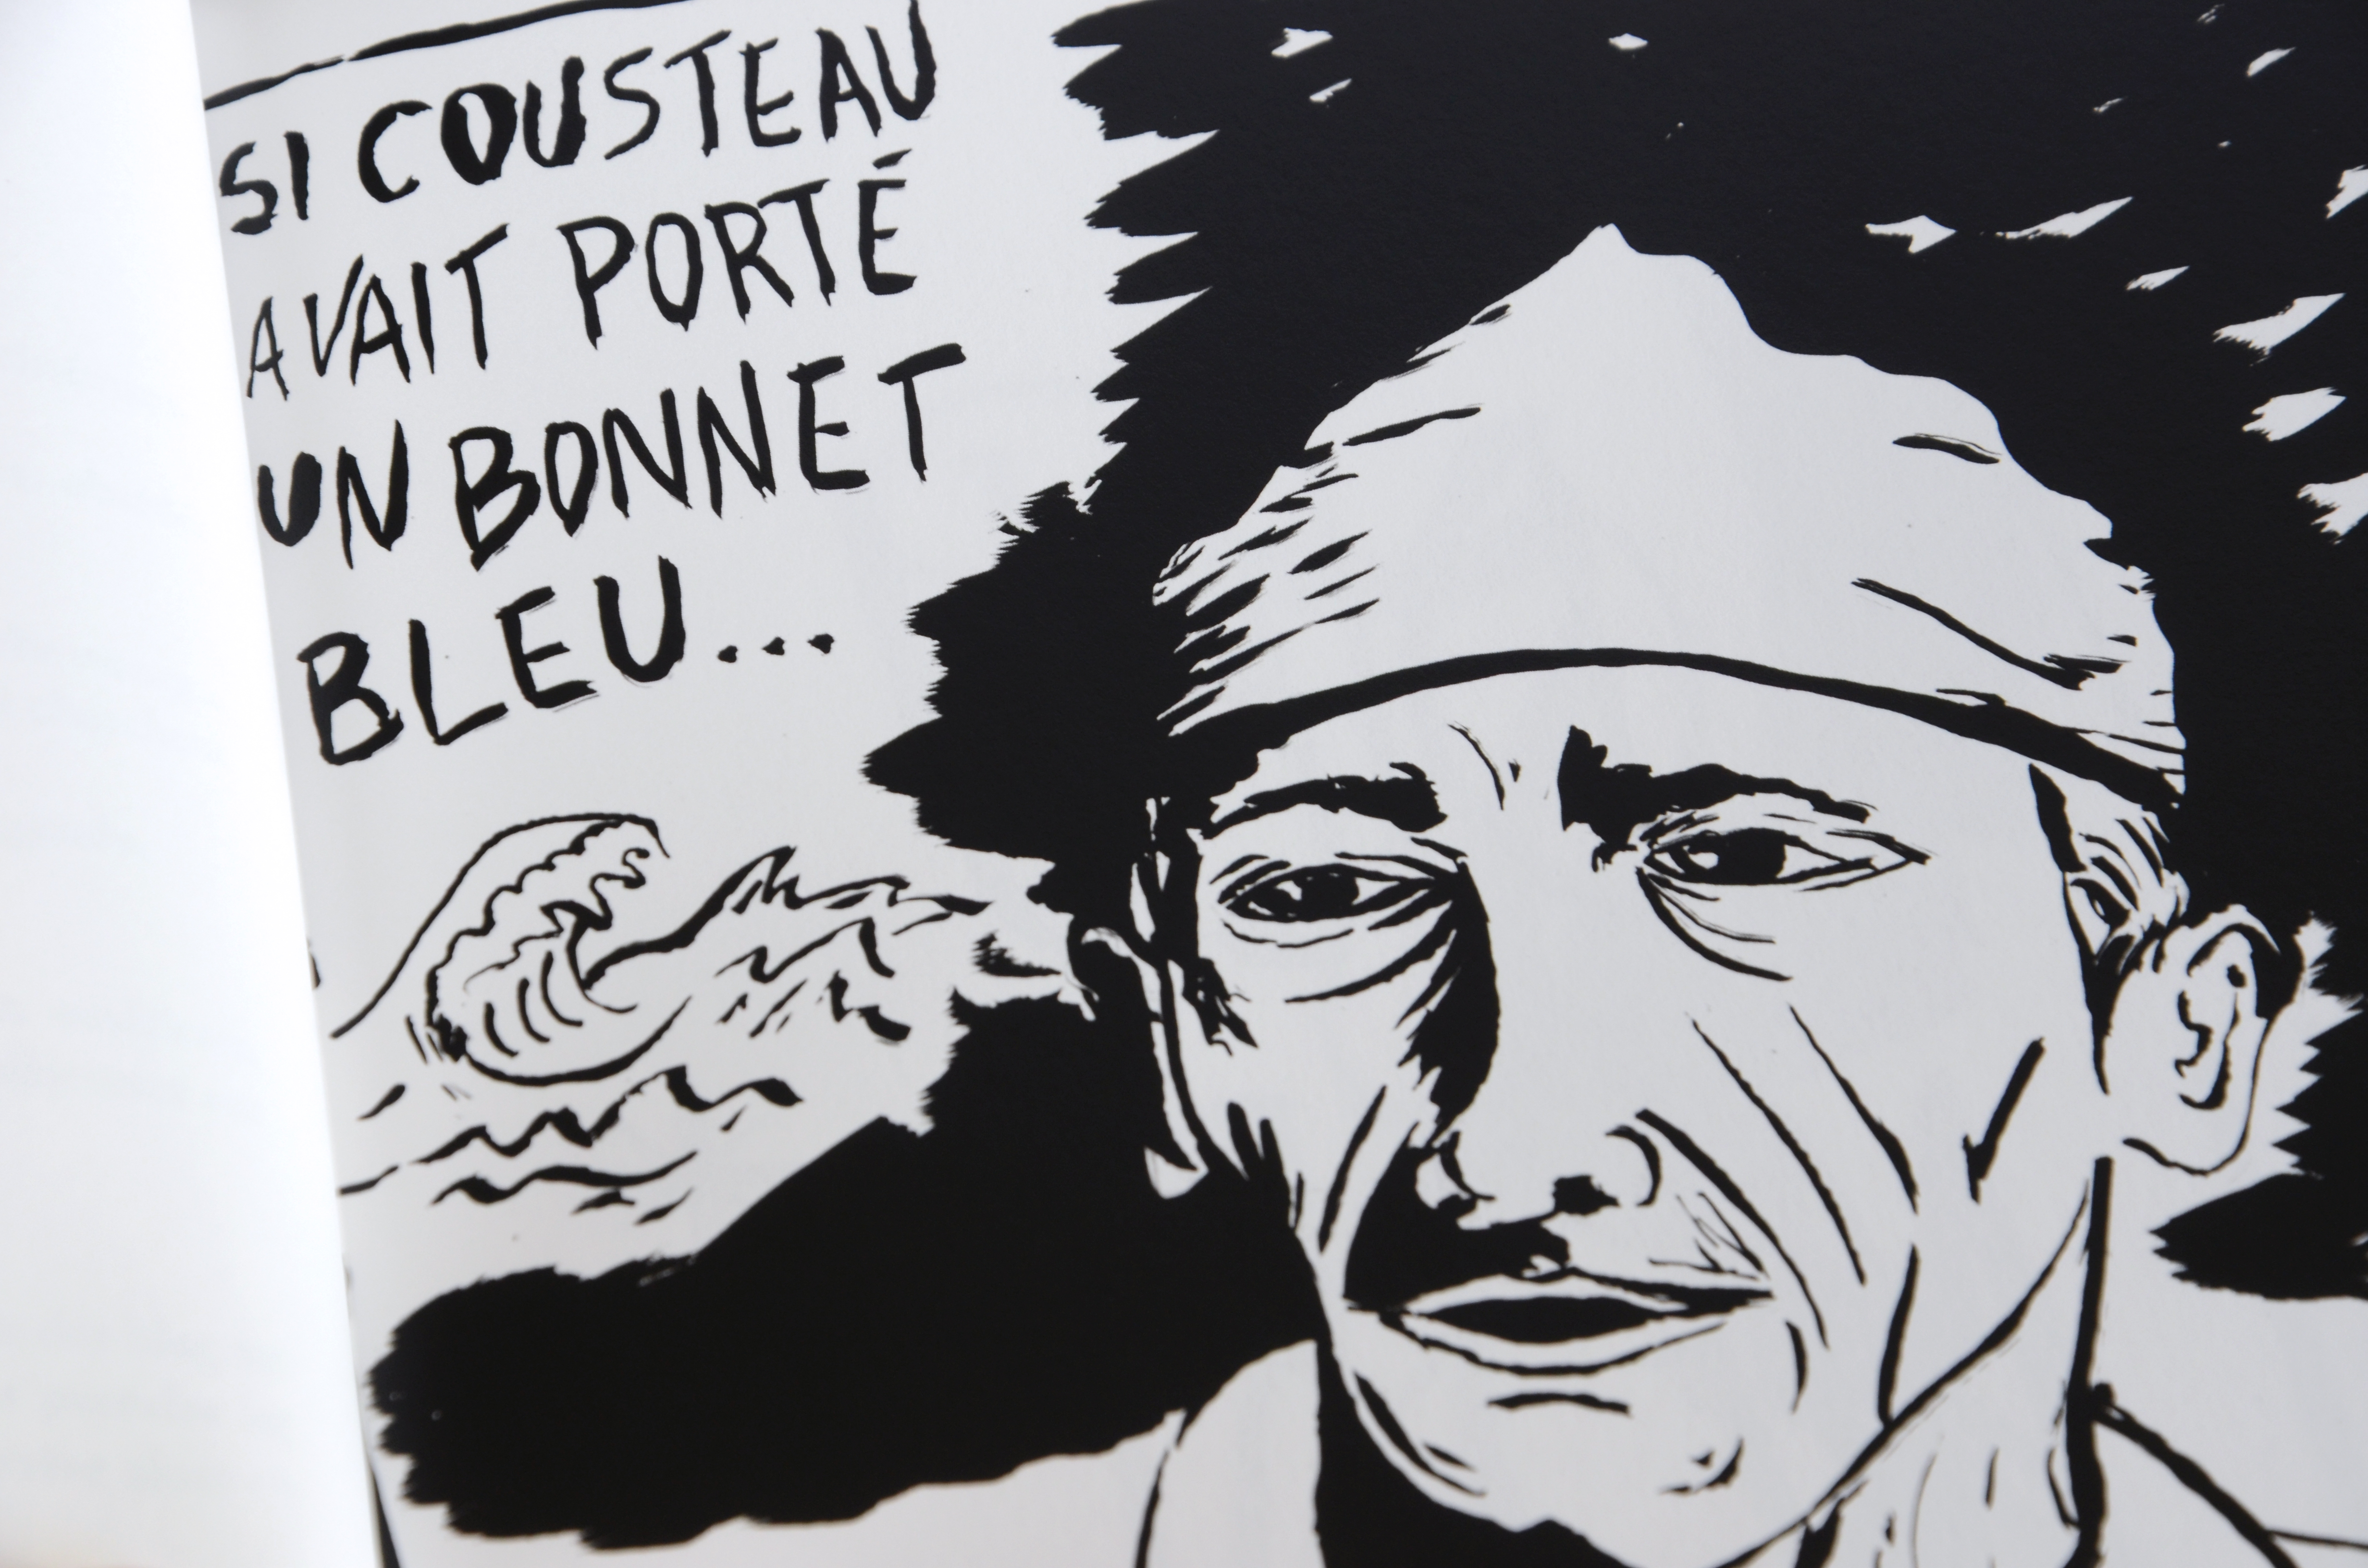 SI COUSTEAU
AVAIT PORTÉ
UN BONNET
BLEU...